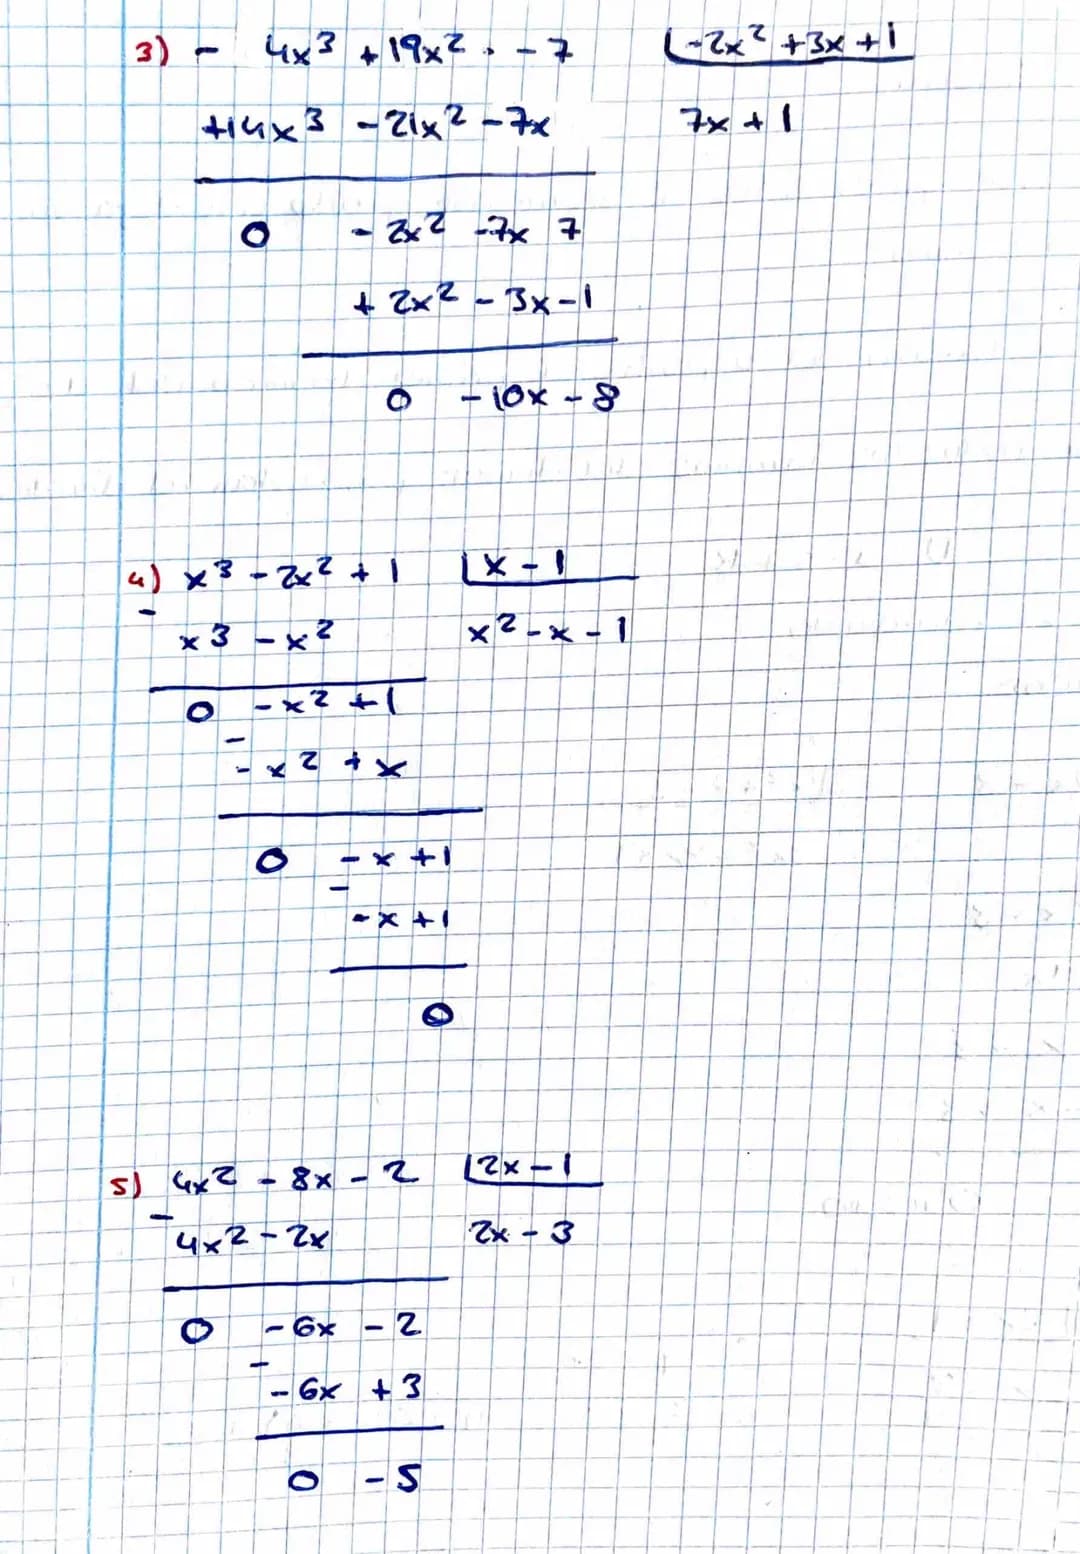 3) - 4x³ + 19x² . - 7 | -2x² + 3x + 1
+14x³ - 21x² - 7x 7x + 1
0 - 2x² - 7x 7
+ 2x² - 3x - 1
0 - 10x - 8
4) x³ - 2x² + 1 | x - 1
-
x³ - x² x² - x - 1
0 - x² + 1
-
- x² + x
0 - x + 1
-
- x + 1
0
5) 4x² - 8x - 2 | 2x - 1
-
4x² - 2x 2x - 3
0 - 6x - 2
-
- 6x + 3
0 - 5